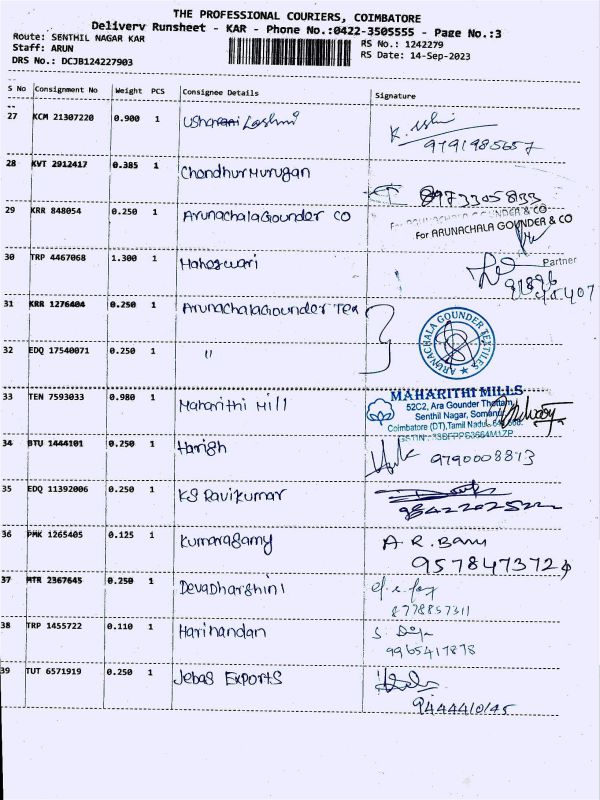 THE PROFESSIONAL COURIERS, COIMBATORE
Delivery Runsheet - KAR - Phone No.:0422-3505555 - Page No.:3
Route: SENTHIL NAGAR KAR
RS No.: 1242279
Staff: ARUN
RS Date: 14-Sep-2023
DRS No.: DCJB124227903
S No Consignment No Weight PCS Consignee Details Signature
27 KCM 21307220 0.900 1 Lashmi
K. Ushi
9791985657
28 KVT 2912417 0.385 1 ChandhurMurugan
8973305833
29 KRR 848054 0.250 1 ArunachalaGounder CO
For ARUNACHALA GOUNDER & CO
For ARUNACHALA GOUNDER & CO
Partner
30 TRP 4467068 1.300 1 Maheswari
31 KRR 1276404 0.250 1 ArunachalaGounder Tex
ARUNACHALA GOUNDER TEXTILES
32 EDQ 17540071 0.250 1 "
33 TEN 7593033 0.980 1 Maharithi Mill
MAHARITHI MILLS
52C2, Ara Gounder Thottam,
Senthil Nagar,
Coimbatore (DT), Tamil Nadu
34 BTU 1444101 0.250 1 Harish
9790008813
35 EDQ 11392006 0.250 1 KS Ravikumar
36 PMK 1265405 0.125 1 Kumarasamy
A R. Banu
37 MTR 2367645 0.250 1 Devadharshini
8778857311
38 TRP 1455722 0.110 1 Harinandan
9965417878
39 TUT 6571919 0.250 1 Jebas Exports